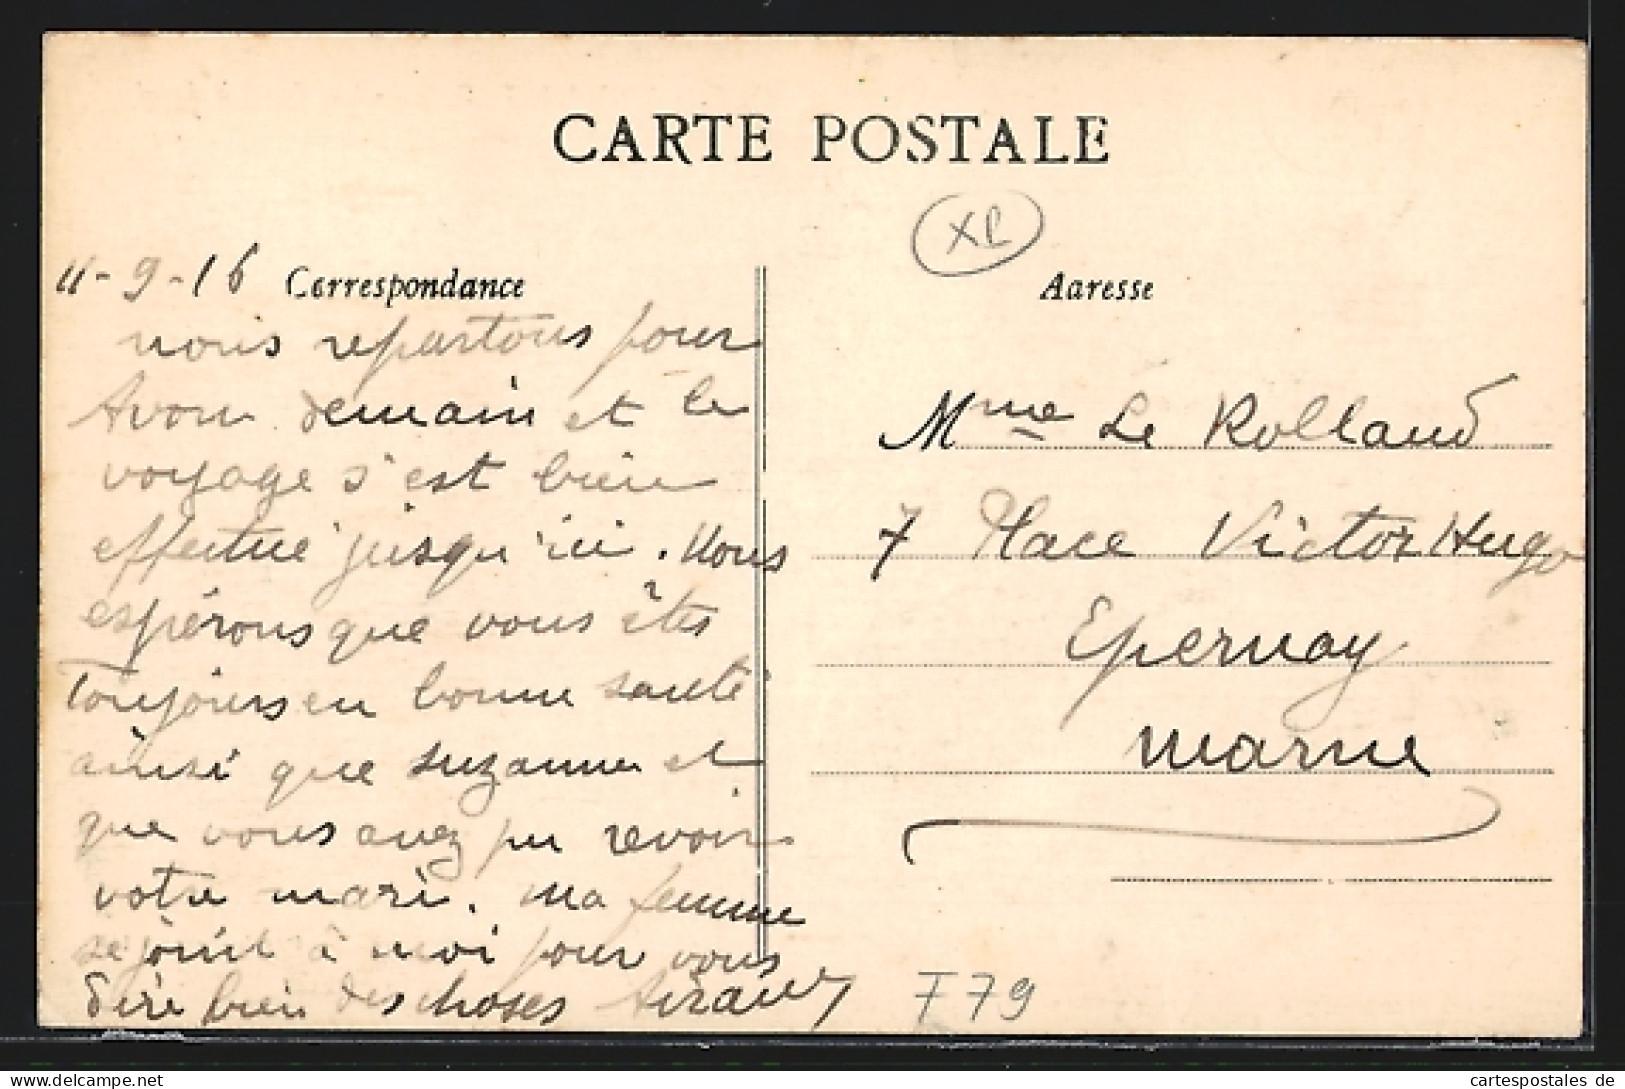 CARTE POSTALE
XR
11-9-16 Correspondance
Adresse
nous repartons pour
Avon demain et le
voyage s'est bien
effectué jusqu'ici. Nous
espérons que vous êtes
Toujours en bonne santé
ainsi que Suzanne et
que vous avez pu revoir
votre mari. Ma femme
se joint à moi pour vous
dire bien des choses
Mme Le Rolland
7 Place Victor Hugo
Epernay
Marne
T79
www.cartespostales.de
cartespostales de